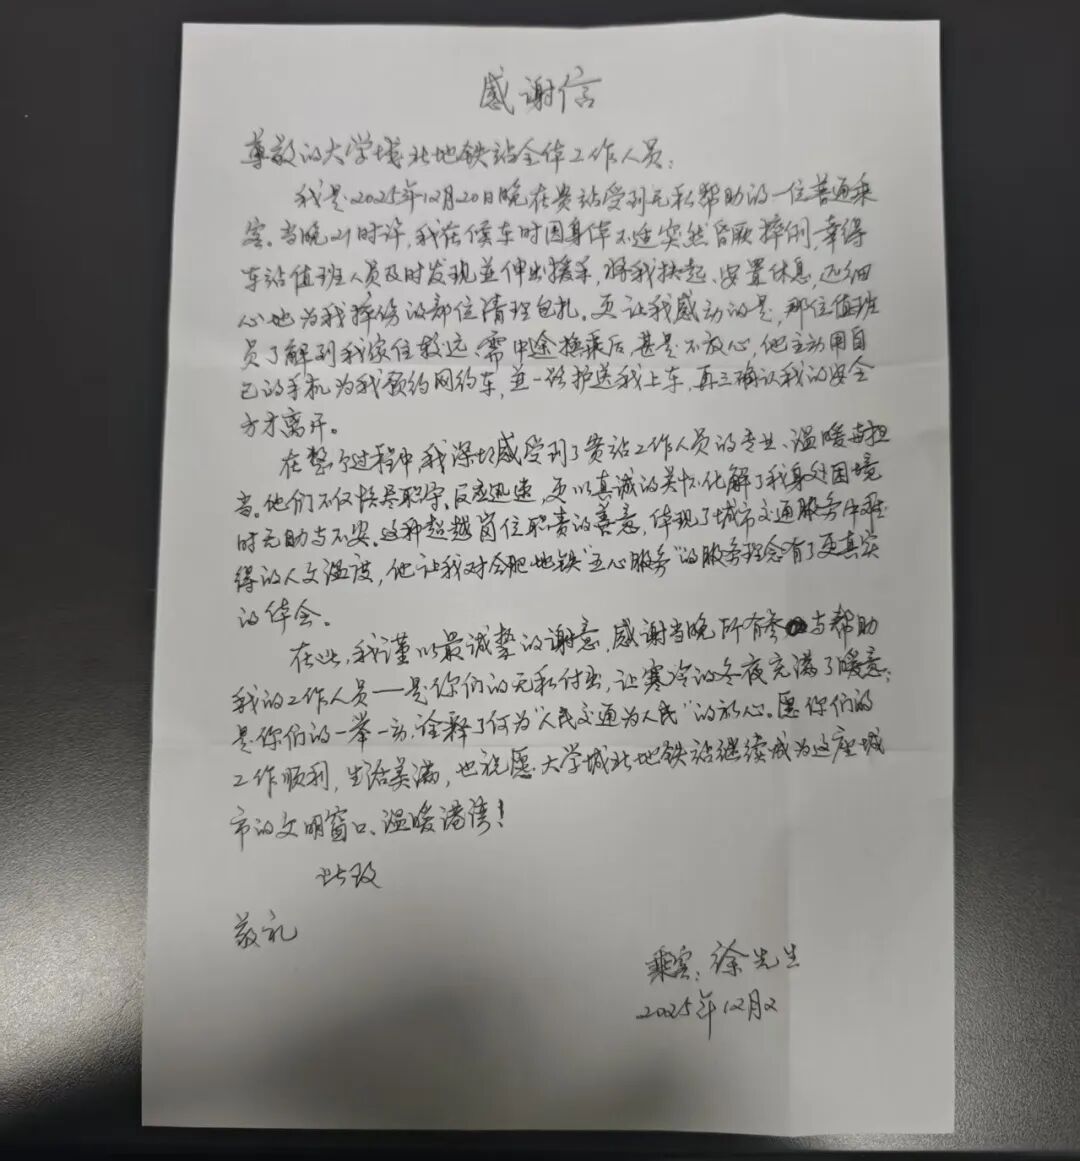 感谢信
尊敬的大学城北地铁站全体工作人员:
我是2025年12月20日晚在贵站受到无私帮助的一位普通乘
客。当晚21时许,我在候车时因身体不适突然昏厥摔倒,幸得
车站值班人员及时发现并伸出援手,将我扶起、安置休息,还细
心地为我摔伤的部位清理包扎。更让我感动的是,那位值班
员了解到我家住较远、需中途换乘后,甚是不放心,他主动用自
己的手机为我预约网约车,并一路护送我上车,再三确认我的安全
方才离开。
在整个过程中,我深切感受到了贵站工作人员的专业、温暖与担
当。他们不仅恪尽职守、反应迅速,更以真诚的关怀化解了我身处困境
时无助与不安。这种超越岗位职责的善意,体现了城市交通服务中难
得的人文温度,他让我对合肥地铁“五心服务”的服务理念有了更真实
的体会。
在此,我谨以最诚挚的谢意,感谢当晚所有参与帮助
我的工作人员——是你们的无私付出,让寒冷的冬夜充满了暖意;
是你们的一举一动,诠释了何为“人民交通为人民”的初心。愿你们的
工作顺利,生活美满,也祝愿大学城北地铁站继续成为这座城
市的文明窗口、温暖港湾!
此致
敬礼
乘客:徐先生
2025年12月2